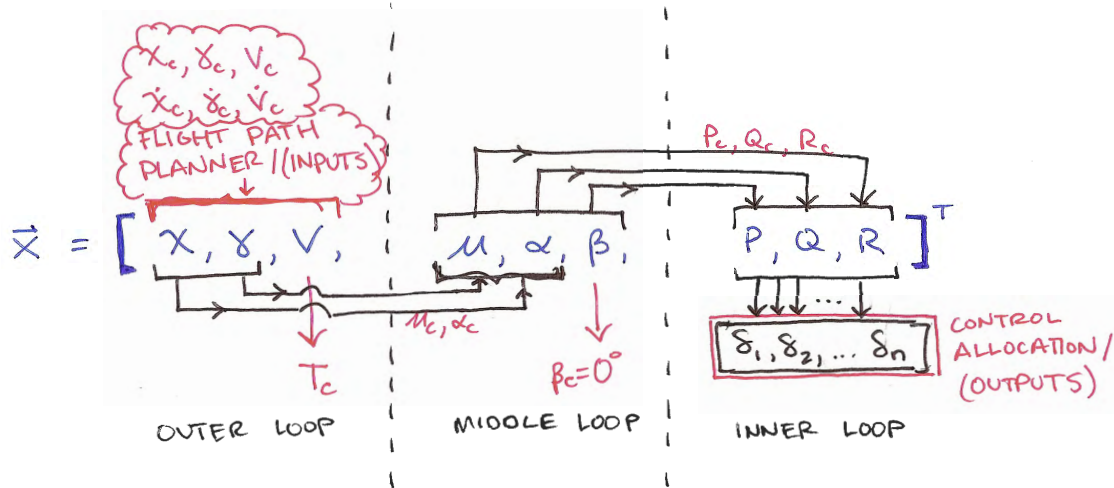 χc, γc, Vc
χ̇c, γ̇c, V̇c
FLIGHT PATH
PLANNER/(INPUTS)
Pc, Qc, Rc
x⃗ = [χ, γ, V, μ, α, β, P, Q, R]ᵀ
μc, αc
Tc
βc=0°
δ1, δ2, ... δn
...
CONTROL
ALLOCATION/
(OUTPUTS)
OUTER LOOP
MIDDLE LOOP
INNER LOOP